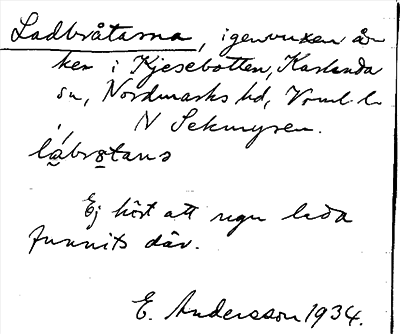 Ladbråtarna, igenvuxen åker
ker i Kjesebotten, Karlanda
sn, Nordmarks hd, Vrml. l.
N Sekmyren.
lábrotans
Ej hört att ngn lada
funnits där.
E. Andersson 1934.